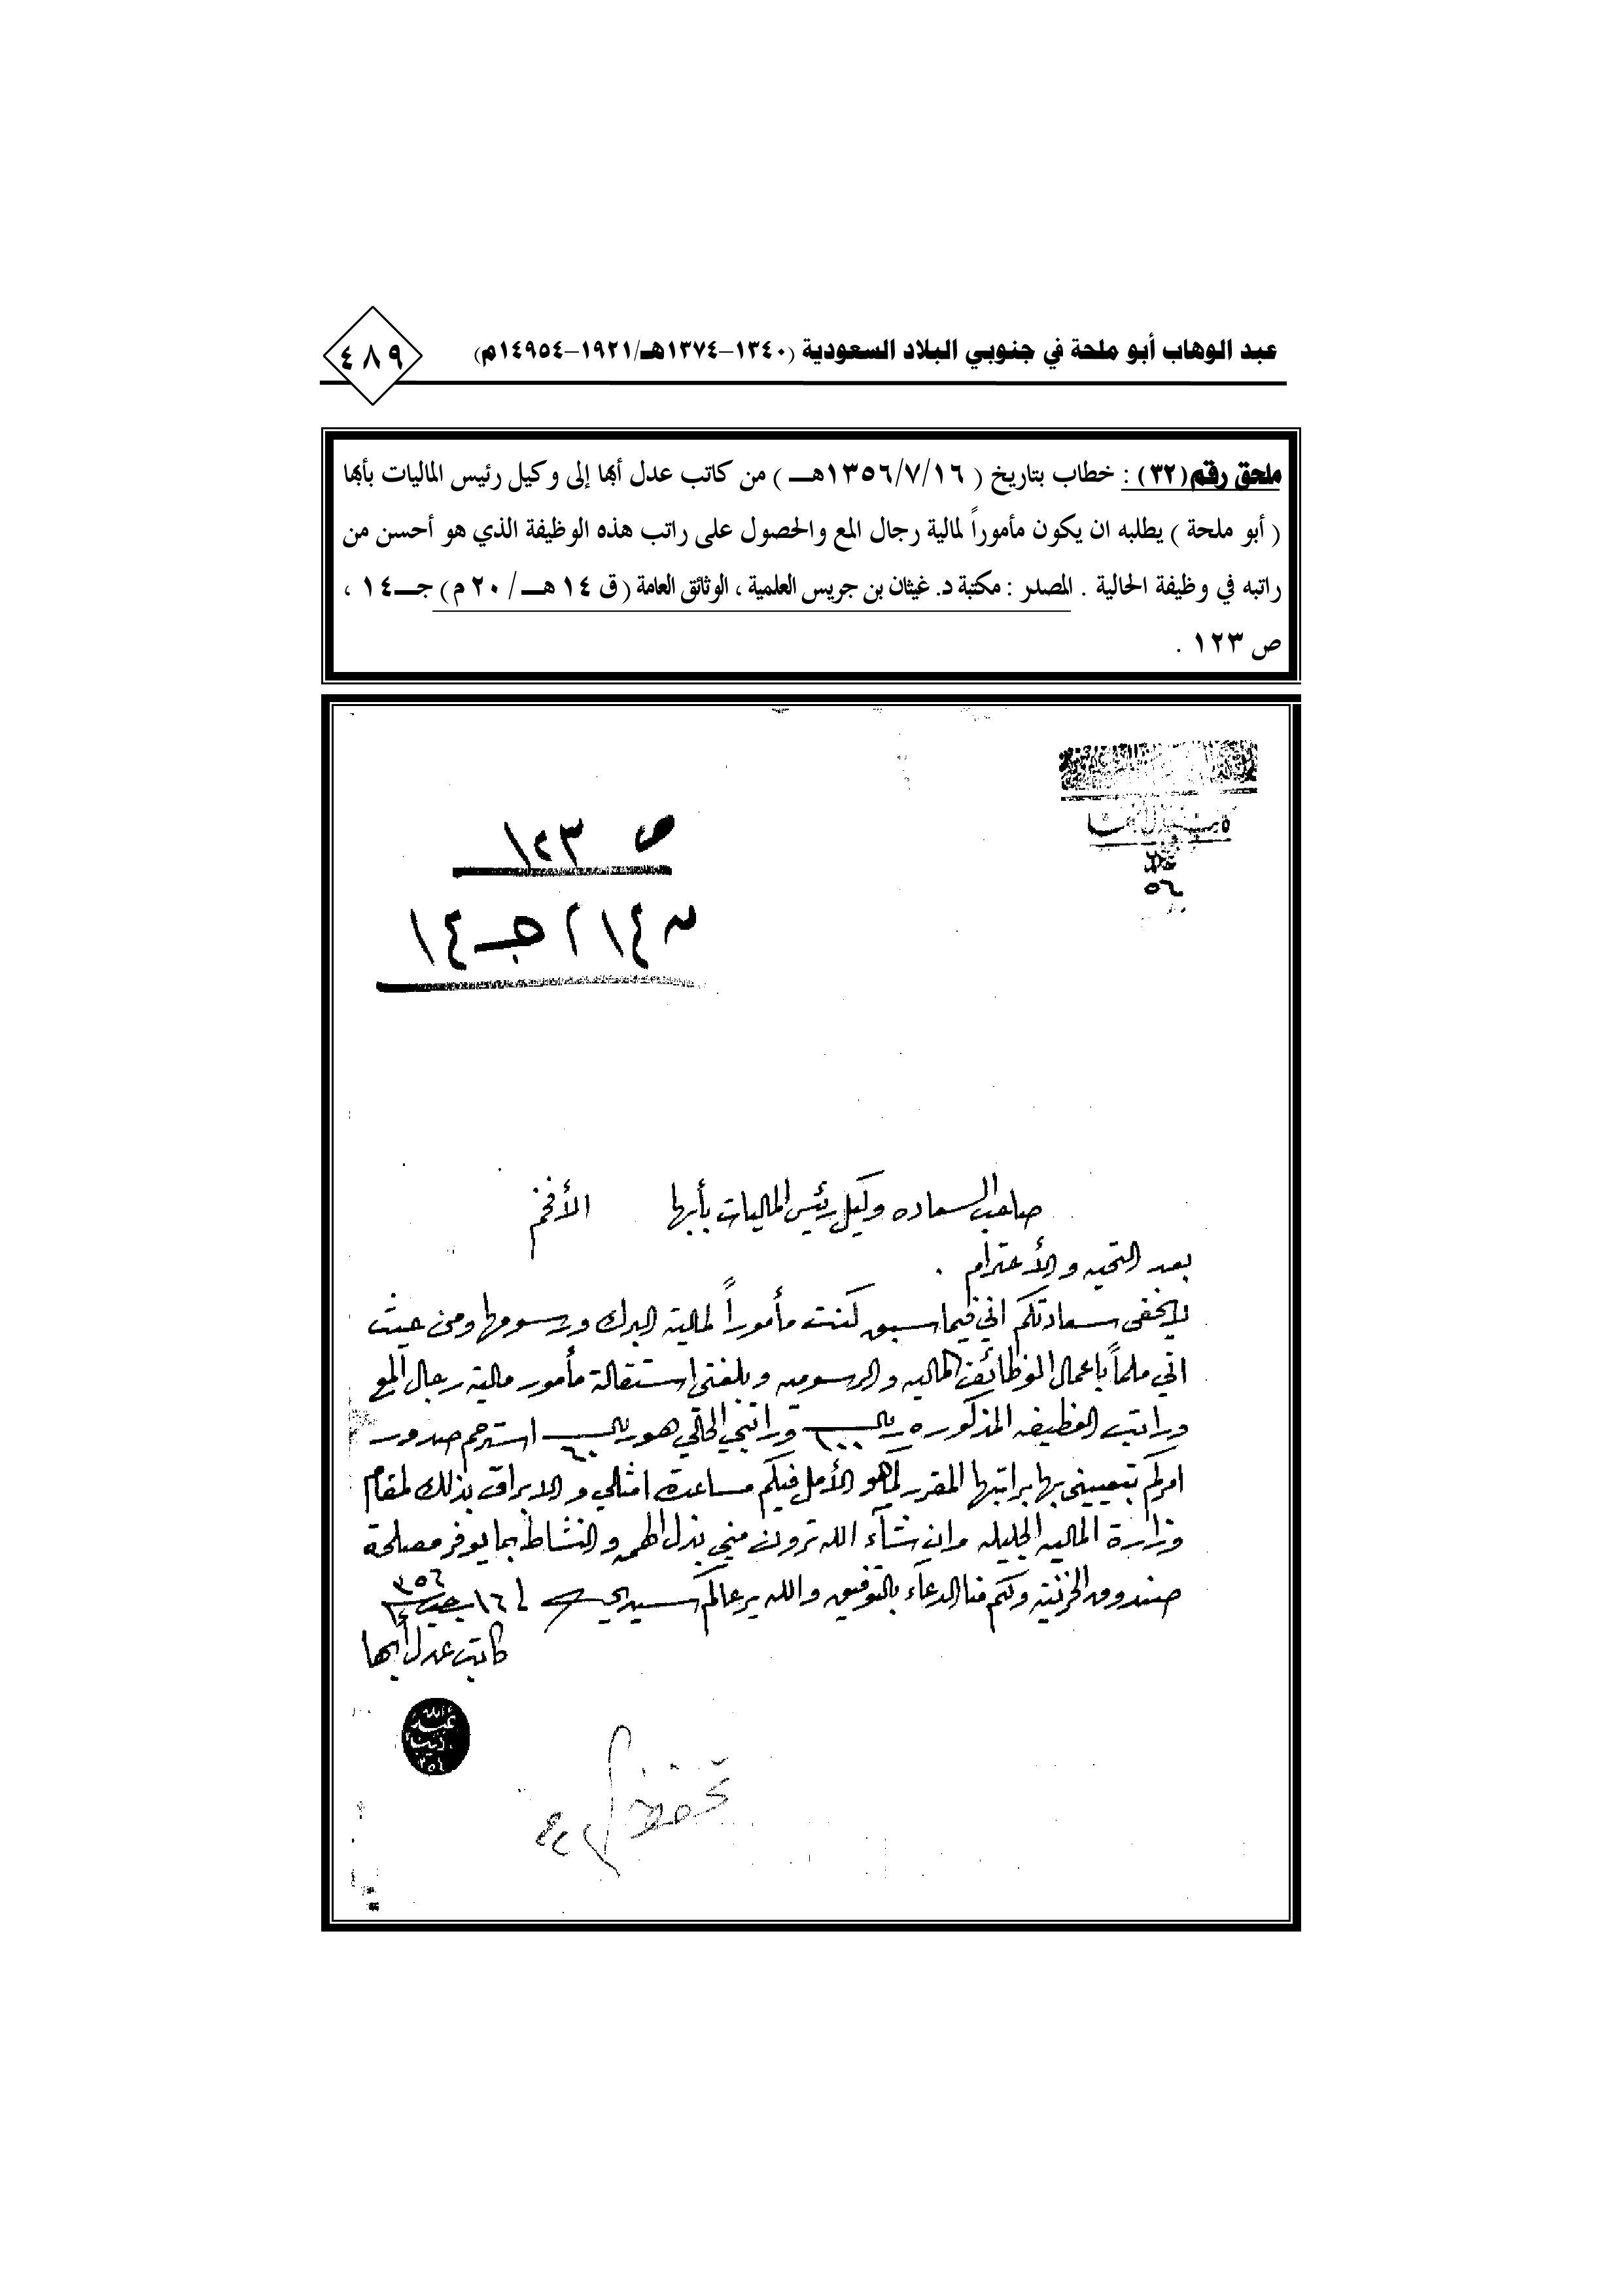 عبد الوهاب أبو ملحة في جنوبي البلاد السعودية (١٣٤٠-١٣٧٤هـ/١٩٢١-١٤٩٥٤م)
٤٨٩
ملحق رقم (٣٢) : خطاب بتاريخ ( ١٣٥٦/٧/١٦هـ ) من كاتب عدل أبها إلى وكيل رئيس الماليات بأبها
( أبو ملحة ) يطلبه ان يكون مأموراً لمالية رجال المع والحصول على راتب هذه الوظيفة الذي هو أحسن من
راتبه في وظيفة الحالية . المصدر : مكتبة د. غيثان بن جريس العلمية ، الوثائق العامة (ق ١٤ هـ / ٢٠ م) جـ ١٤ ،
ص ١٢٣ .
ص ١٢٣
جـ ١٤
صاحب السعاده وكيل رئيس الماليات بأبها الأفخم
بعد التحيه والأحترام .
لايخفى سعادتكم اني فيما سبق كنت مأموراً لمالية البرك ورسومها ومن حيث
اني ملماً باعمال الوظائف الماليه والرسوميه وبلغني استقالة مأمور مالية رجال المع
وراتب الوظيفه المذكوره ريال ١٠٠ وراتبي الحالي هو ريال ٦٠ استرحم صدور
امركم بتعييني بها براتبها المقرر لما هو الأمل فيكم مساعدة امثلي والابراق بذلك لمقام
وزارة الماليه الجليله وان شآء الله ترون مني بذل الهمه والنشاط بما يوفر مصلحة
صندوق الخزنيه ولكم منا الدعآء بالتوفيق والله يرعاكم سيدي في ١٦ رجب ٣٥٦
كاتب عدل أبها
عبد الله
تحفظ